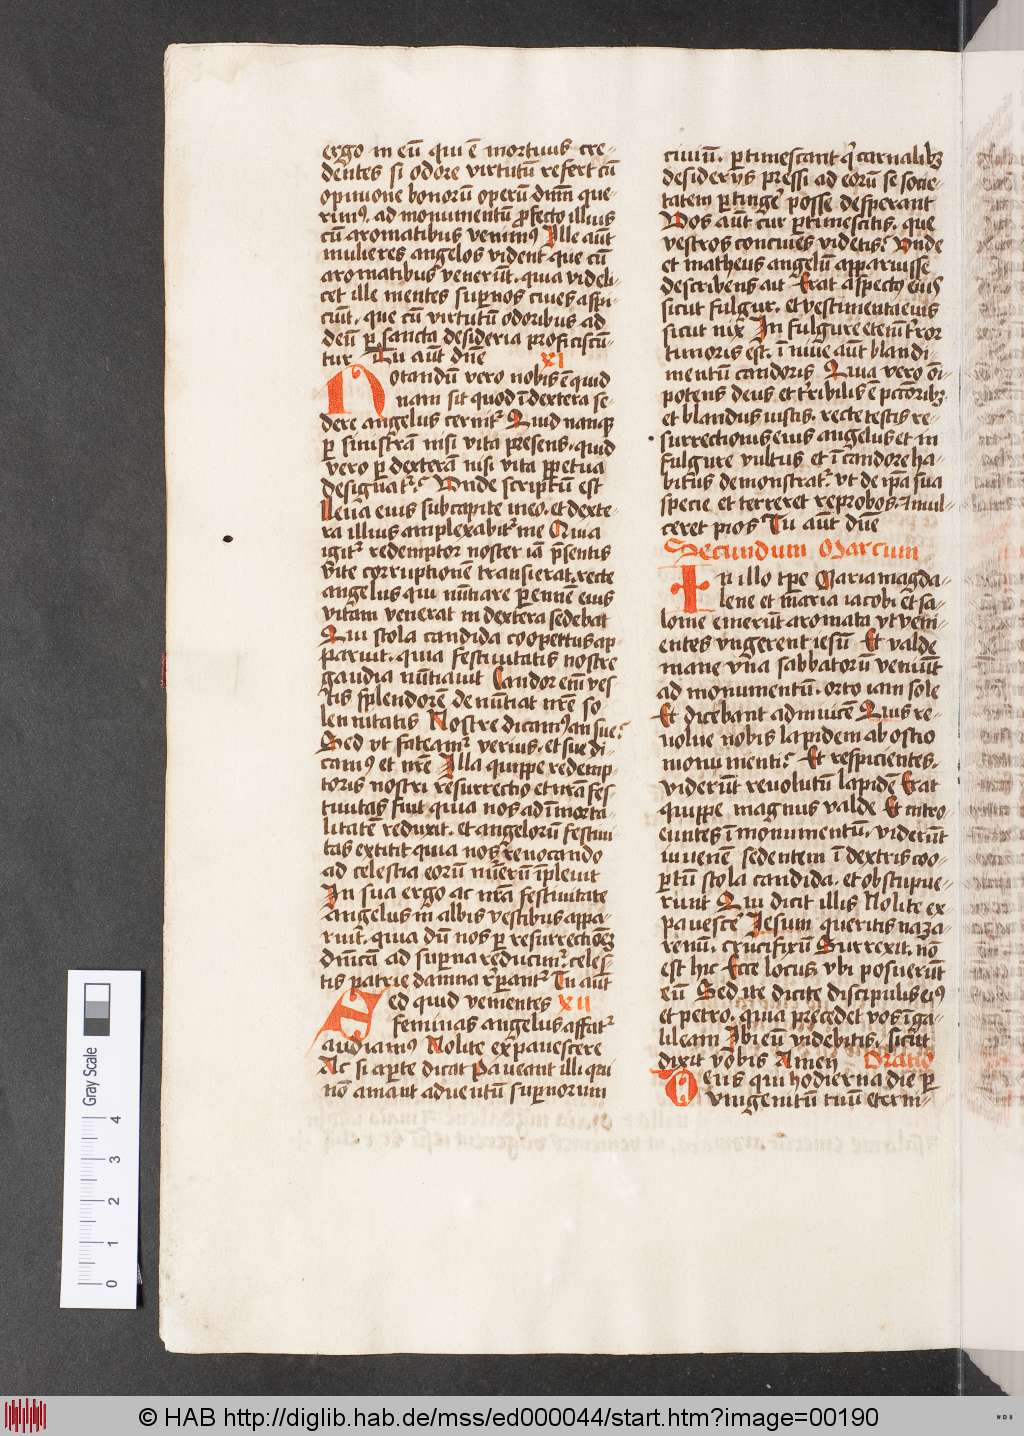 ergo in eū qui ē mortuus cre-
dentes si odore virtutū refert cū
opinione bonorū operū dnm̄ que-
rimꝰ. ad monumentū ꝓfecto illius
cū aromatibus venimꝰ Ille aūt
mulieres angelos vident que cū
aromatibus venerūt. quia videli-
cet ille mentes sup̄nos ciues aspi-
ciūt. que cū virtutū odoribus ad
deū ꝑ sancta desideria proficiscū-
tur Tu aūt dn̄e XI
Notandū vero nobis ē quid
nam sit quod ī dextera se-
dere angelus cernitᷣ Quid nanqꝫ
ꝑ sinistrā nisi vita presens. quid
vero ꝑ dexterā nisi vita ꝑpetua
designatᷣ? Unde scriptū est
Leua eius sub capite meo. et dexte-
ra illius amplexabitᷣ me Quia
igitᷣ redemptor noster iā p̄sentis
vite corruptionē transierat. recte
angelus qui nūtiare ꝑennem eius
vitam venerat in dextera sedebat
Qui stola candida coopertus ap-
paruit. quia festiuitatis nostre
gaudia nūtiauit Candor em̄ ves-
tis splendorē denūtiat nr̄e so-
lennitatis Nostre dicamꝰ an sue?
Sed vt fateamᷣ verius. et sue di-
camꝰ et nr̄e Illa quippe redemp-
toris nostri resurrectio et nr̄a fes-
tiuitas fuit quia nos ad īmorta-
litatē reduxit. et angelorū festiui-
tas extitit quia nos reuocando
ad celestia eorū nūerū īpleuit
In sua ergo ac nr̄a festiuitate
angelus in albis vestibus appa-
ruit. quia dū nos ꝑ resurrectionē
dn̄icā ad superna reducimᷣ. celes-
tis patrie damna reꝑantᷣ Tu aūt
Sed quid venientes XII
feminas angelus affatᷣ
audiamꝰ Nolite expauescere
Ac si aꝑte dicat Paueant illi qui
nō amant aduentū supernorum
ciuiū. ꝑtimescant qͥ carnalibꝫ
desideriis pressi ad eorū se socie-
tatem ꝑtingere posse desperant
Vos aūt cur ꝑtimescitis. que
vestros conciues videtis? Unde
et matheus angelū apparuisse
describens ait Erat aspectꝰ eius
sicut fulgur. et vestimenta eius
sicut nix In fulgure etenī terror
timoris est. ī niue aūt blandi-
mentū candoris Quia vero oī-
potens deus et terribilis ē pctōribꝫ
et blandus iustis. recte testis re-
surrectionis eius angelus et in
fulgure vultus et ī candore ha-
bitus demonstratᷣ. vt de ip̄a sua
specie et terreret reprobos. et mul-
ceret pios Tu aūt dn̄e
Secundum Marcum
In illo tp̄e Maria magda-
lene et maria iacobi et sa-
lome emerūt aromata vt veni-
entes vngerent iesū Et valde
mane vna sabbatorū veniūt
ad monumentū. orto iam sole
Et dicebant adinuicē Quis re-
voluet nobis lapidem ab ostio
monumenti? Et respicientes.
viderūt reuolutū lapidē Erat
quippe magnus valde Et intro-
euntes ī monumentū. viderūt
iuuenē sedentem ī dextris coo-
ꝑtū stola candida. et obstupue-
runt Qui dicit illis Nolite ex-
pauescere Iesum queritis naza-
renū. crucifixū Surrexit. nō
est hic Ecce locus vbi posuerūt
eū Sed ite dicite discipulis eiꝰ
et petro. quia precedet vos ī ga-
lileam Ibi eū videbitis. sicut
dixit vobis Amen Oratio
Deus qui hodierna die ꝑ
vnigenitū tuū eterni-
Gray Scale
4
3
2
1
0
© HAB http://diglib.hab.de/mss/ed000044/start.htm?image=00190